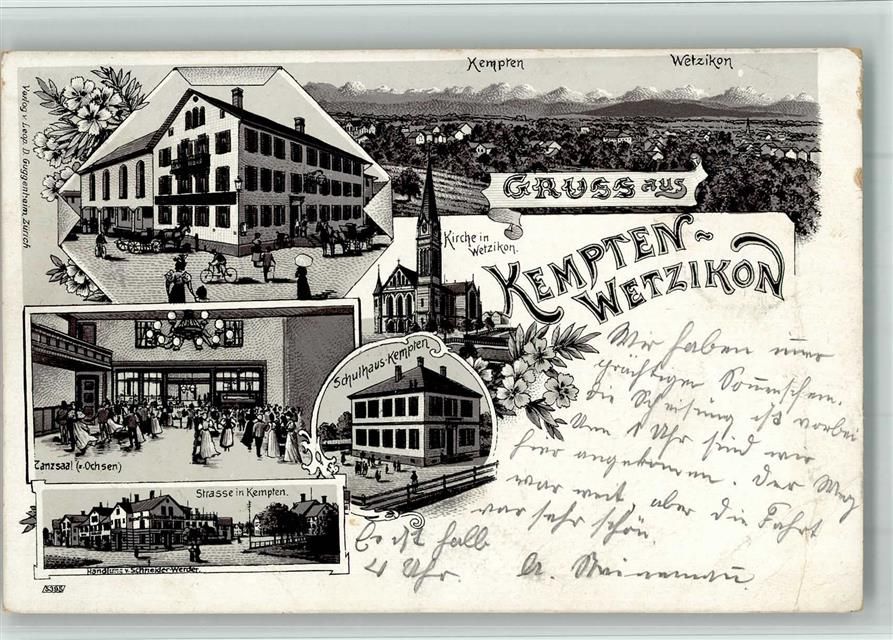 Kempten
Wetzikon
Verlag v. Leop. D. Guggenheim, Zürich
GRUSS aus
KEMPTEN-
WETZIKON
Kirche in
Wetzikon.
Schulhaus-Kempten
Tanzsaal (z. Ochsen)
Strasse in Kempten.
Handlung v. Schneider-Werder.
Wir haben
prächtigen Sonnenschein.
Die ist vorbei
Um 1 Uhr sind wir
hier angekommen. Der Weg
war weit, aber die Fahrt
war sehr schön.
Es ist halb
4 Uhr.